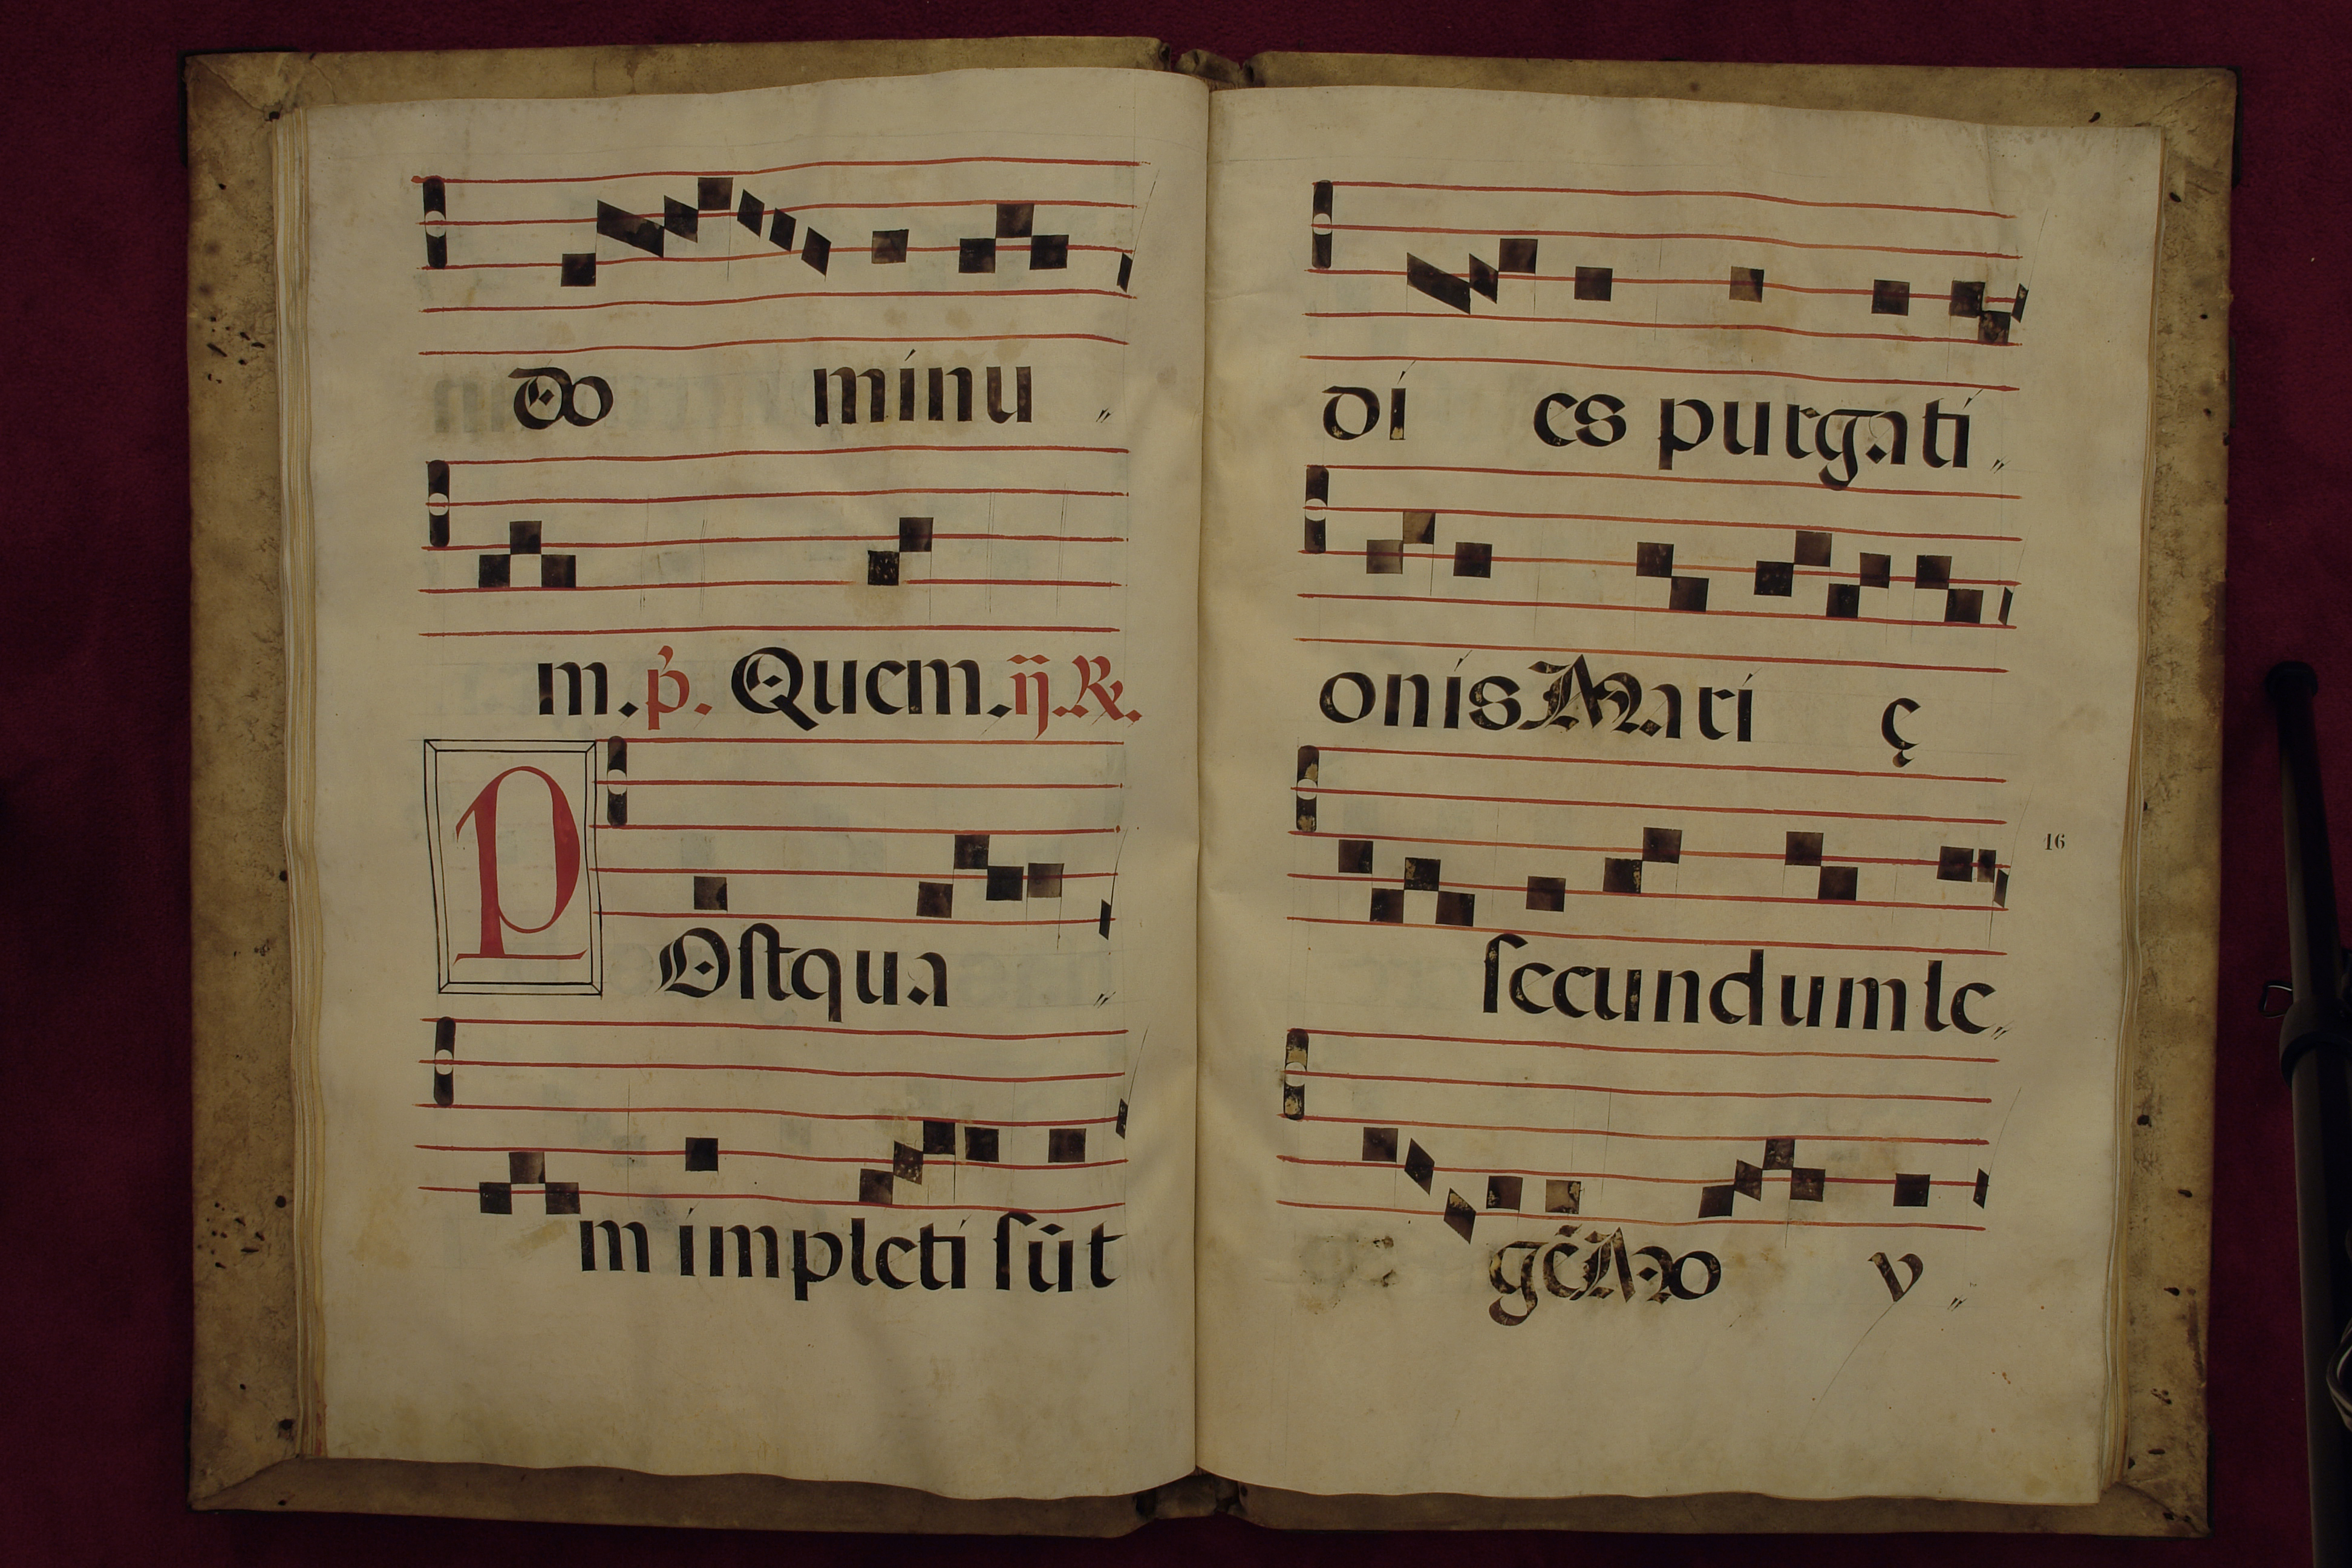 do minu〃
m. p̃. Quem. ij. ℟.
POſtqua〃
m impleti ſūt
di es purgati〃
onis Mari ę
16
ſecundum le〃
gē Mo y〃